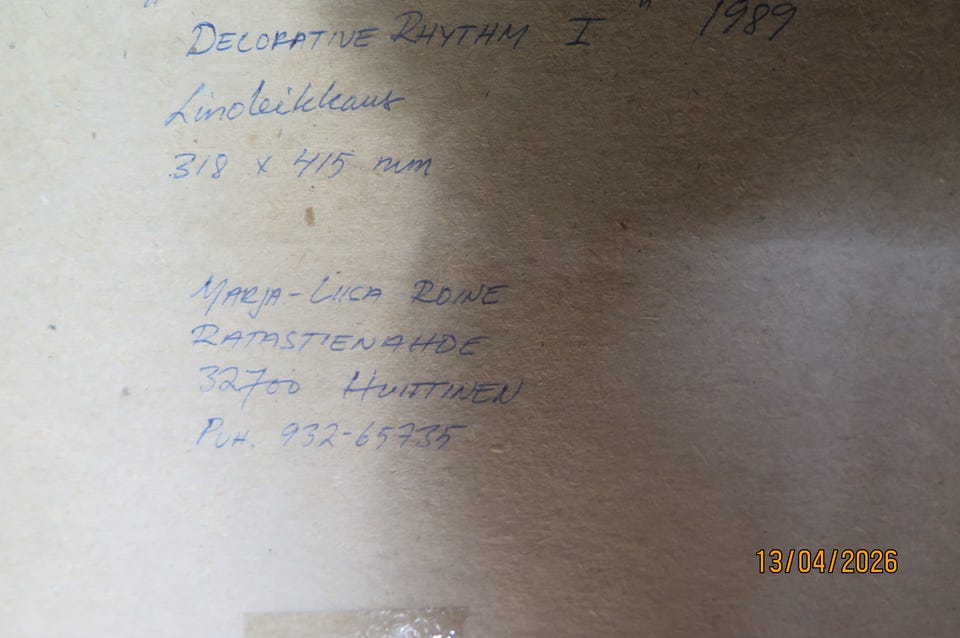 " DECORATIVE RHYTHM I " 1989
Linoleikkaus
318 x 415 mm
MARJA-LIISA ROINE
RATASTIENAHDE
32700 HUITTINEN
PUH. 932-65735
13/04/2026